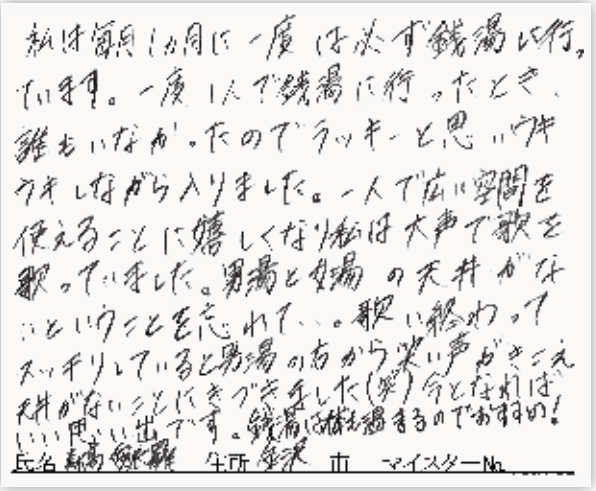 私は毎月1カ月に一度は必ず銭湯に行っ
ています。一度1人で銭湯に行ったとき、
誰もいなかったのでラッキーと思いウキ
ウキしながら入りました。一人で広い空間を
使えることに嬉しくなり私は大声で歌を
歌っていました。男湯と女湯の天井がな
いということを忘れて…。歌い終わって
スッキリしていると男湯の方から笑い声がきこえ
天井がないことにきづきました(笑)今となれば
いい思い出です。銭湯は温まるのでおすすめ!
氏名 住所 金沢 市 マイスターNo.